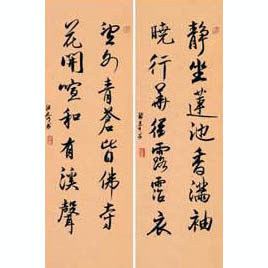 静坐莲池香满袖
晓行华径露沾衣
望外青苍皆佛寺
花开喧和有溪声